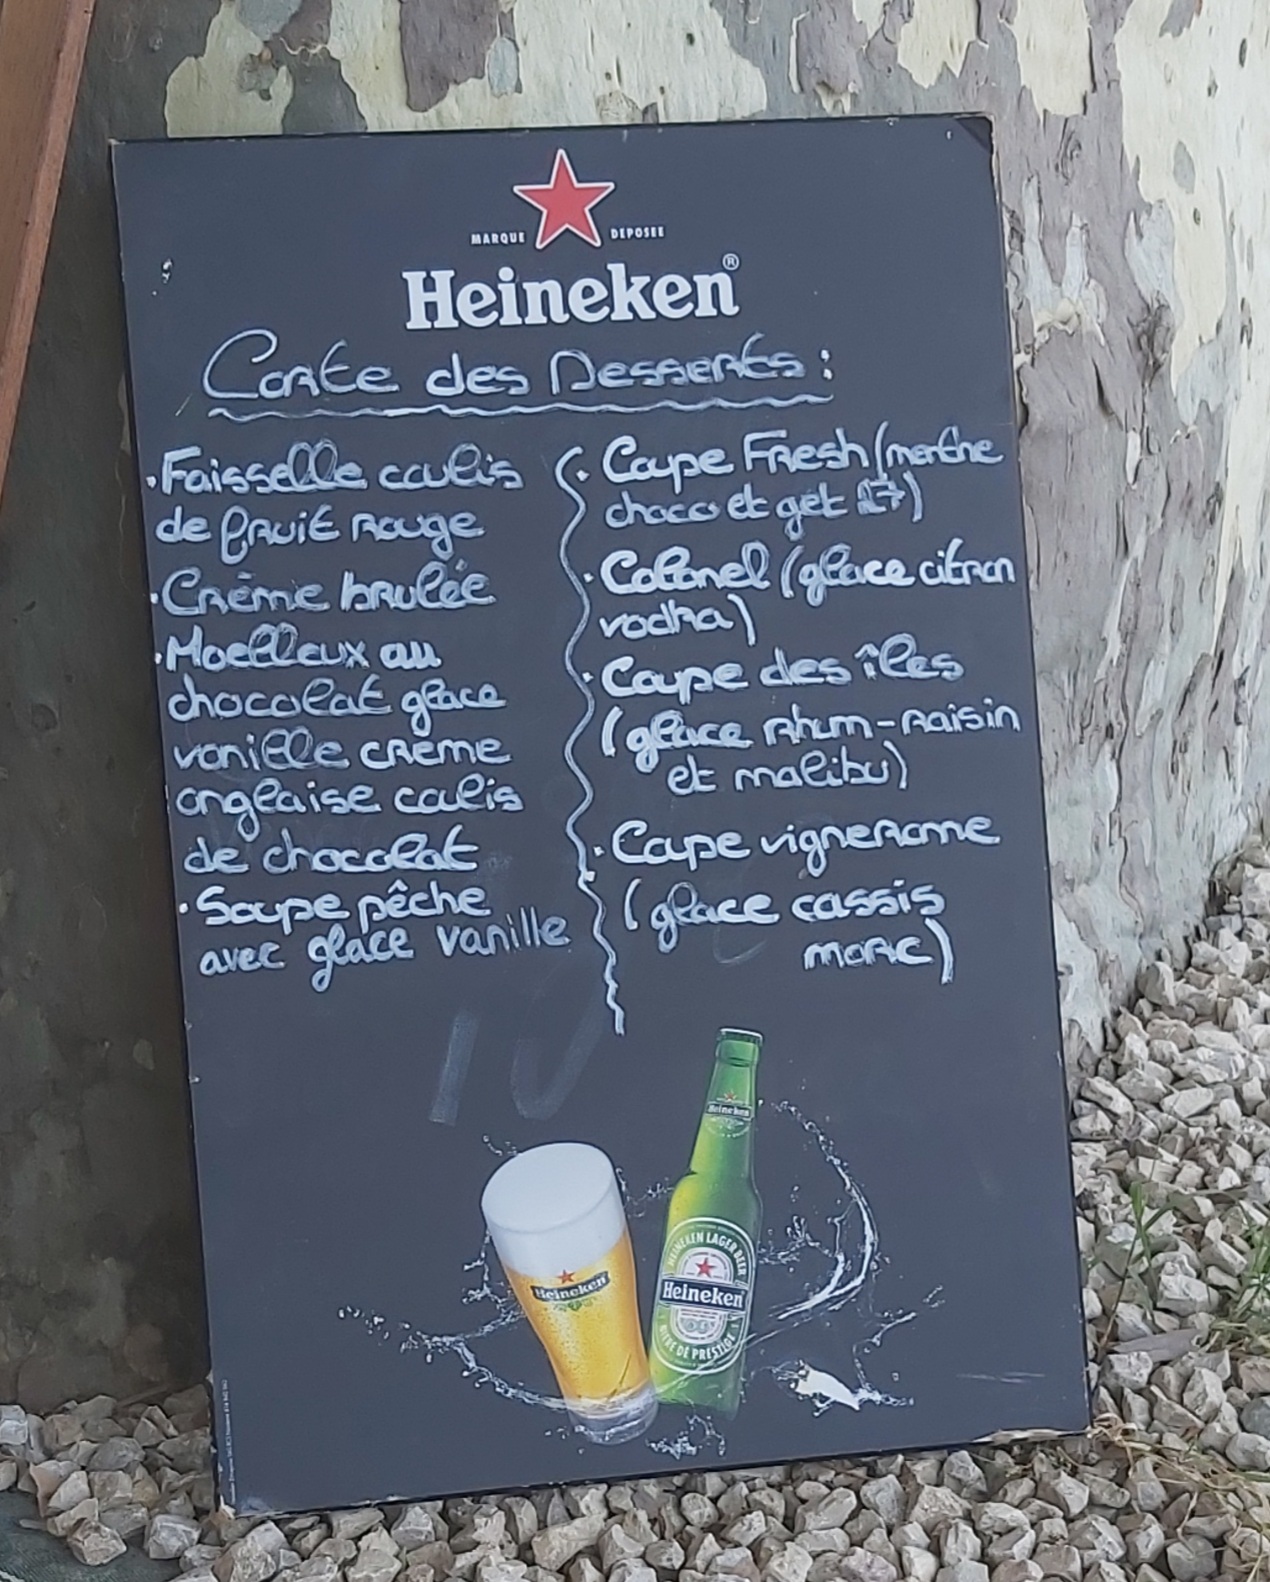 MARQUE DEPOSEE
Heineken®
Carte des Desserts :
·Faisselle coulis
de fruit rouge
·Crème brulée
·Moelleux au
chocolat glace
vanille crème
anglaise coulis
de chocolat
·Soupe pêche
avec glace vanille
·Coupe Fresh (menthe
choco et get 27)
·Colonel (glace citron
vodka)
·Coupe des îles
(glace rhum-raisin
et malibu)
·Coupe vigneronne
(glace cassis
marc)
Heineken
HEINEKEN LAGER BEER
Heineken
BIERE DE PRESTIGE
Heineken